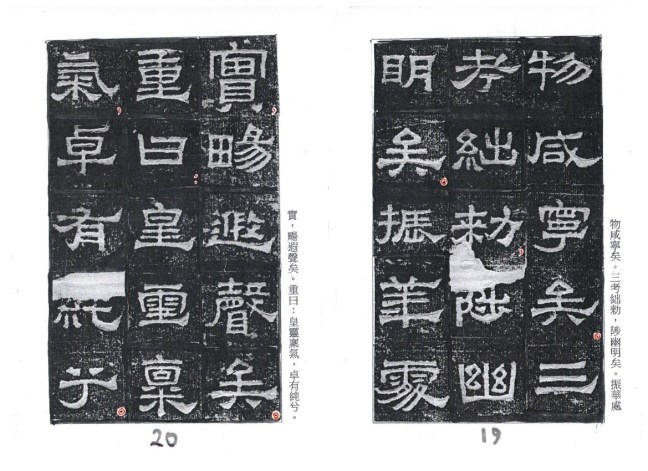 物咸寧矣三
考絀勑陟幽
明矣振華處
物咸寧矣。三考絀勑，陟幽明矣。振華處
19
實暢遐聲矣
重曰皇靈稟
氣卓有純兮
實，暢遐聲矣。重曰：皇靈稟氣，卓有純兮。
20